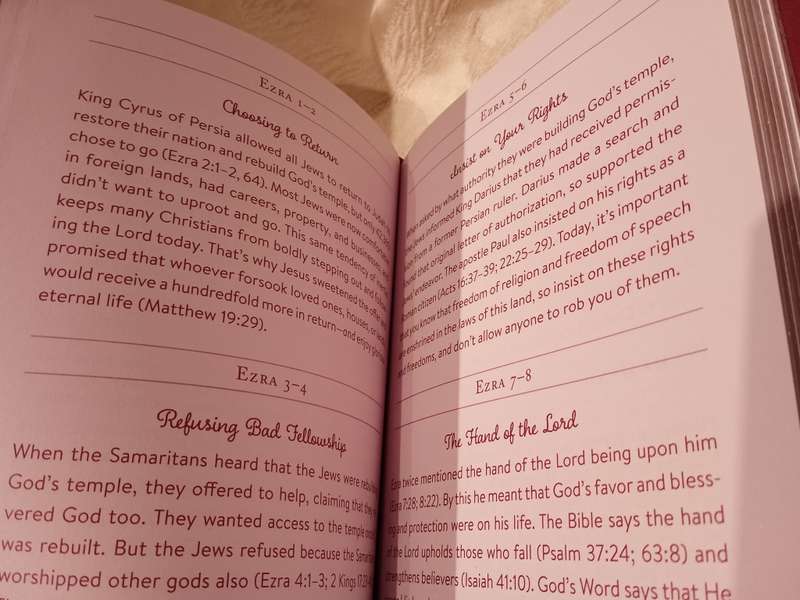 EZRA 1–2
Choosing to Return
King Cyrus of Persia allowed all Jews to return to
restore their nation and rebuild God's temple, but only
chose to go (Ezra 2:1–2, 64). Most Jews were now
in foreign lands, had careers, property, and businesses, and
didn't want to uproot and go. This same tendency
keeps many Christians from boldly stepping out and
ing the Lord today. That's why Jesus sweetened the offer
promised that whoever forsook loved ones, houses, or
would receive a hundredfold more in return—and enjoy
eternal life (Matthew 19:29).
EZRA 3–4
Refusing Bad Fellowship
When the Samaritans heard that the Jews were
God's temple, they offered to help, claiming that
vered God too. They wanted access to the temple
was rebuilt. But the Jews refused because the
worshipped other gods also (Ezra 4:1–3; 2 Kings
EZRA 5–6
Insist on Your Rights
When asked by what authority they were building God's temple,
the Jews informed King Darius that they had received permis-
sion from a former Persian ruler. Darius made a search and
found that original letter of authorization, so supported the
endeavor. The apostle Paul also insisted on his rights as a
Roman citizen (Acts 16:37–39; 22:25–29). Today, it's important
that you know that freedom of religion and freedom of speech
are enshrined in the laws of this land, so insist on these rights
and freedoms, and don't allow anyone to rob you of them.
EZRA 7–8
The Hand of the Lord
Ezra twice mentioned the hand of the Lord being upon him
(Ezra 7:28; 8:22). By this he meant that God's favor and bless-
ing and protection were on his life. The Bible says the hand
of the Lord upholds those who fall (Psalm 37:24; 63:8) and
strengthens believers (Isaiah 41:10). God's Word says that He